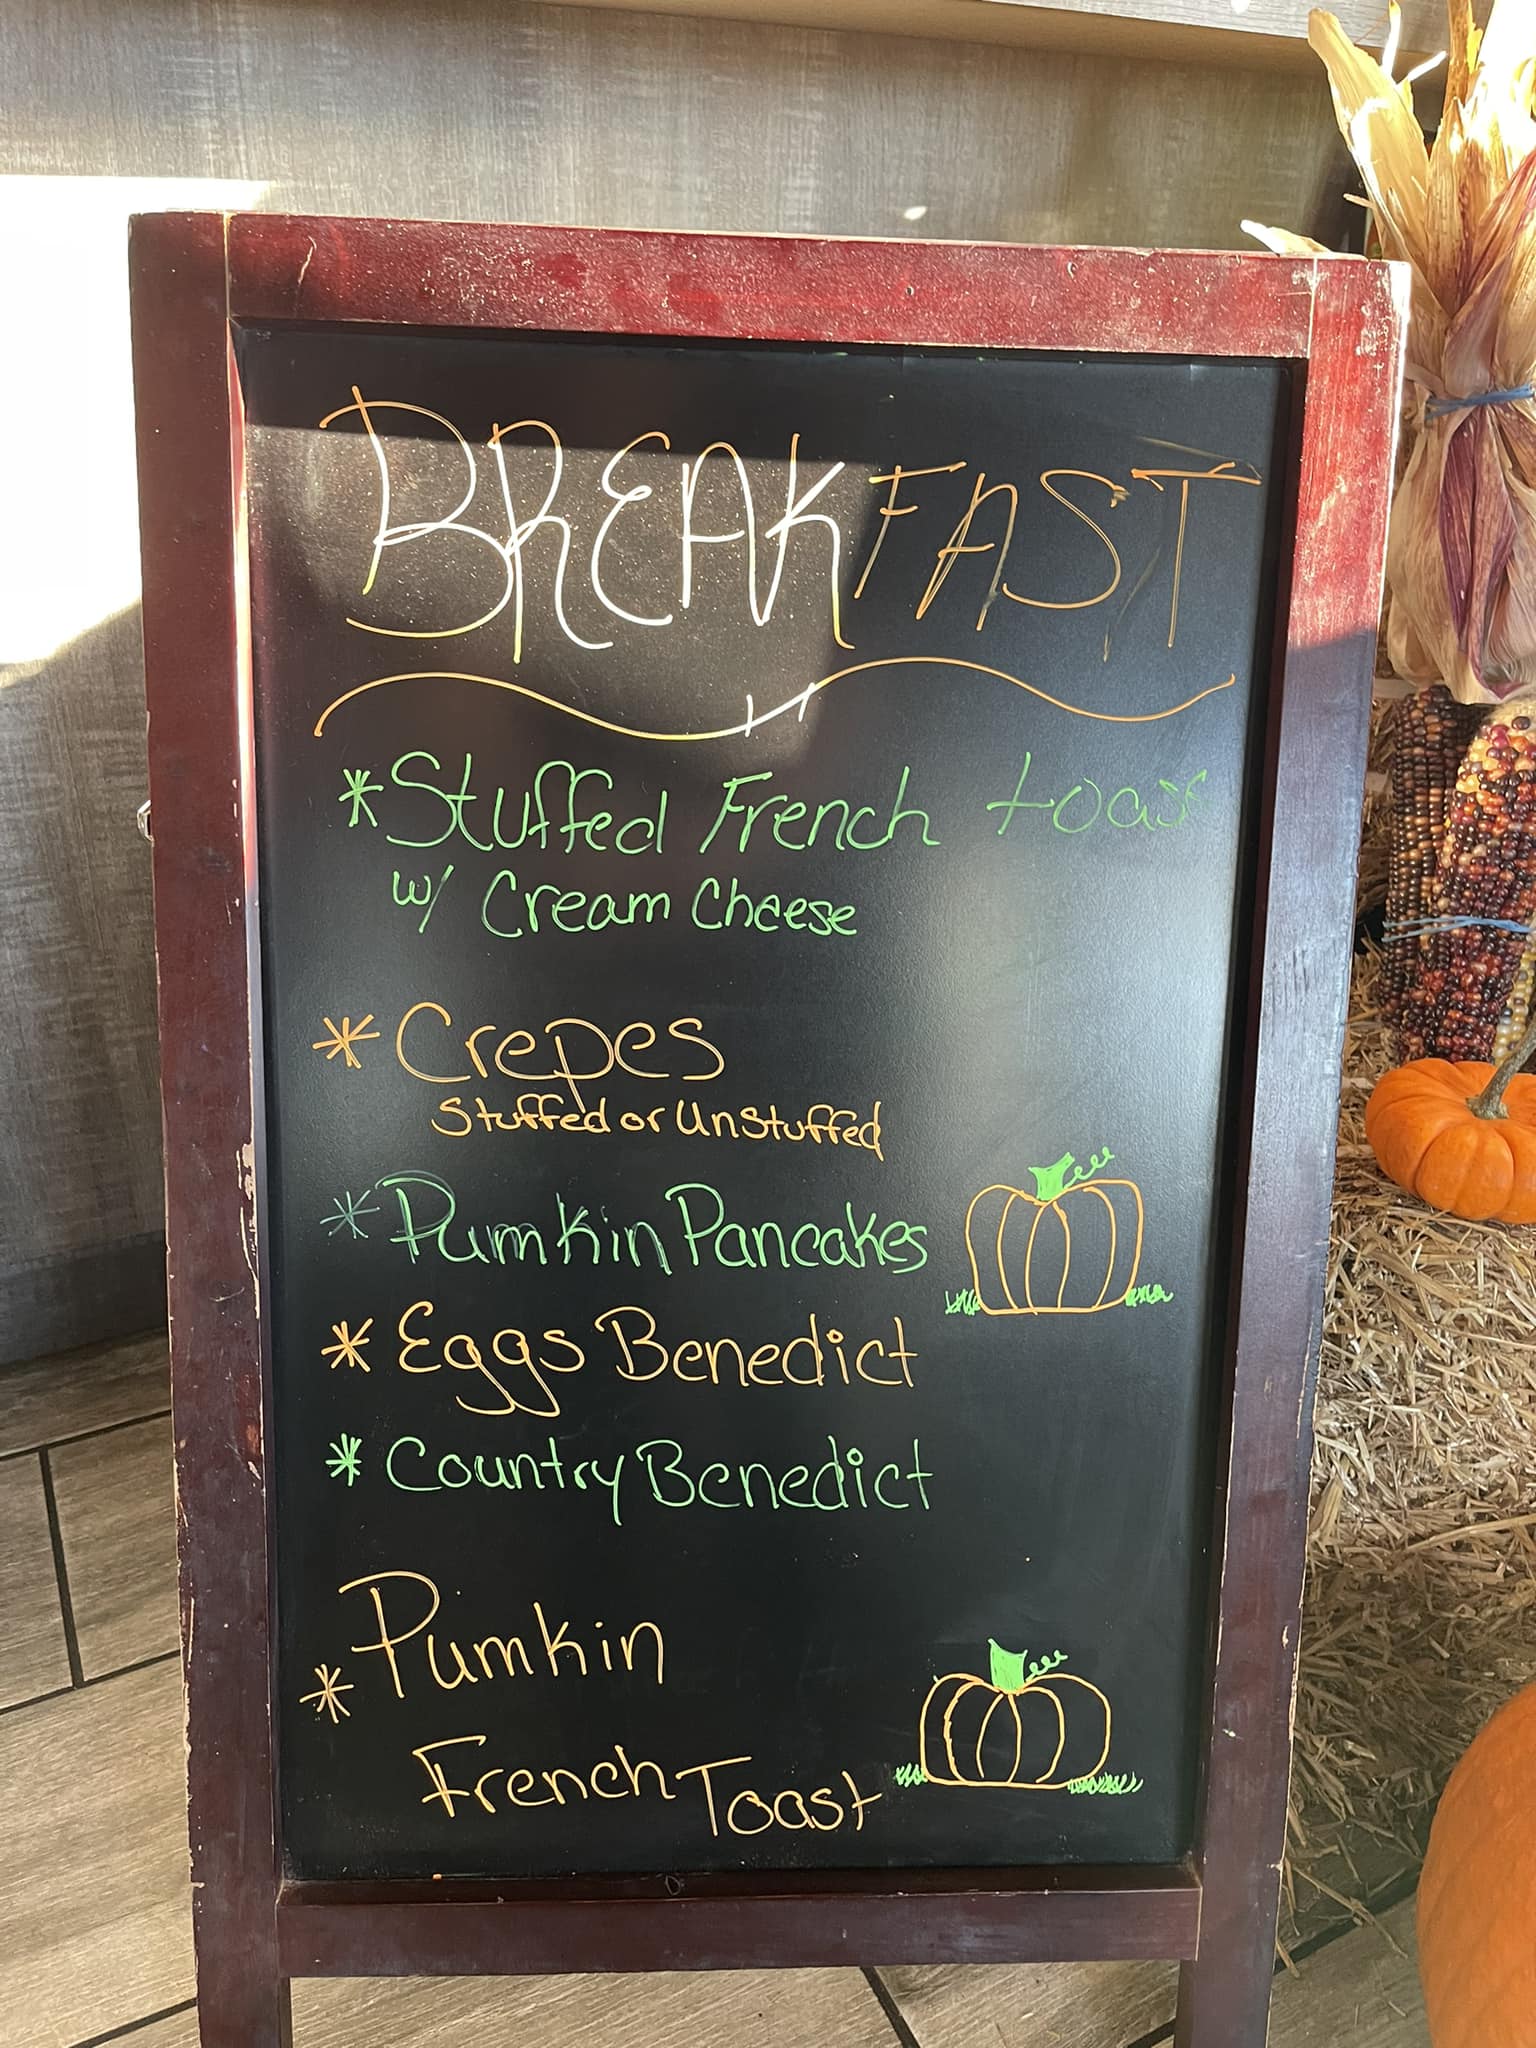 BREAKFAST
*Stuffed French toast
w/ Cream Cheese
*Crepes
Stuffed or Unstuffed
*Pumkin Pancakes
*Eggs Benedict
*Country Benedict
*Pumkin
French Toast